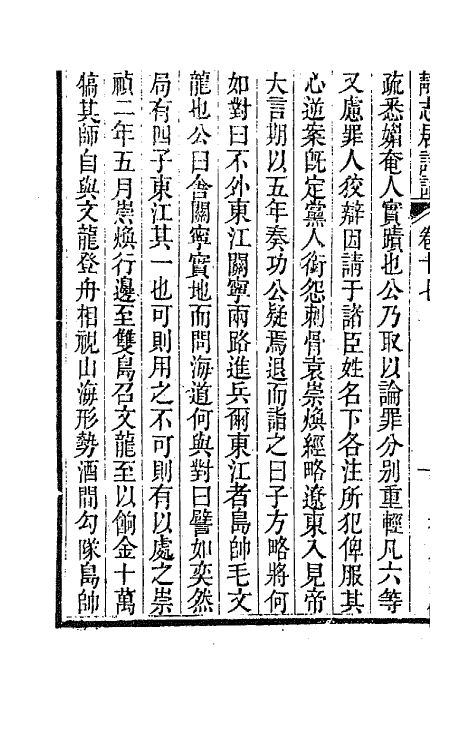 靜志居詩話 卷十七
疏悉媚奄人實蹟也公乃取以論罪分別重輕凡六等
又慮罪人狡辯因請于諸臣姓名下各注所犯俾服其
心逆案旣定黨人銜怨刺骨袁崇煥經略遼東入見帝
大言期以五年奏功公疑焉退而詣之曰子方略將何
如對曰不外東江關寧兩路進兵爾東江者島帥毛文
龍也公曰舍關寧實地而問海道何與對曰譬如奕然
局有四子東江其一也可則用之不可則有以處之崇
禎二年五月崇煥行邊至雙島召文龍至以餉金十萬
犒其師自與文龍登舟相視山海形勢酒間勾隊島帥